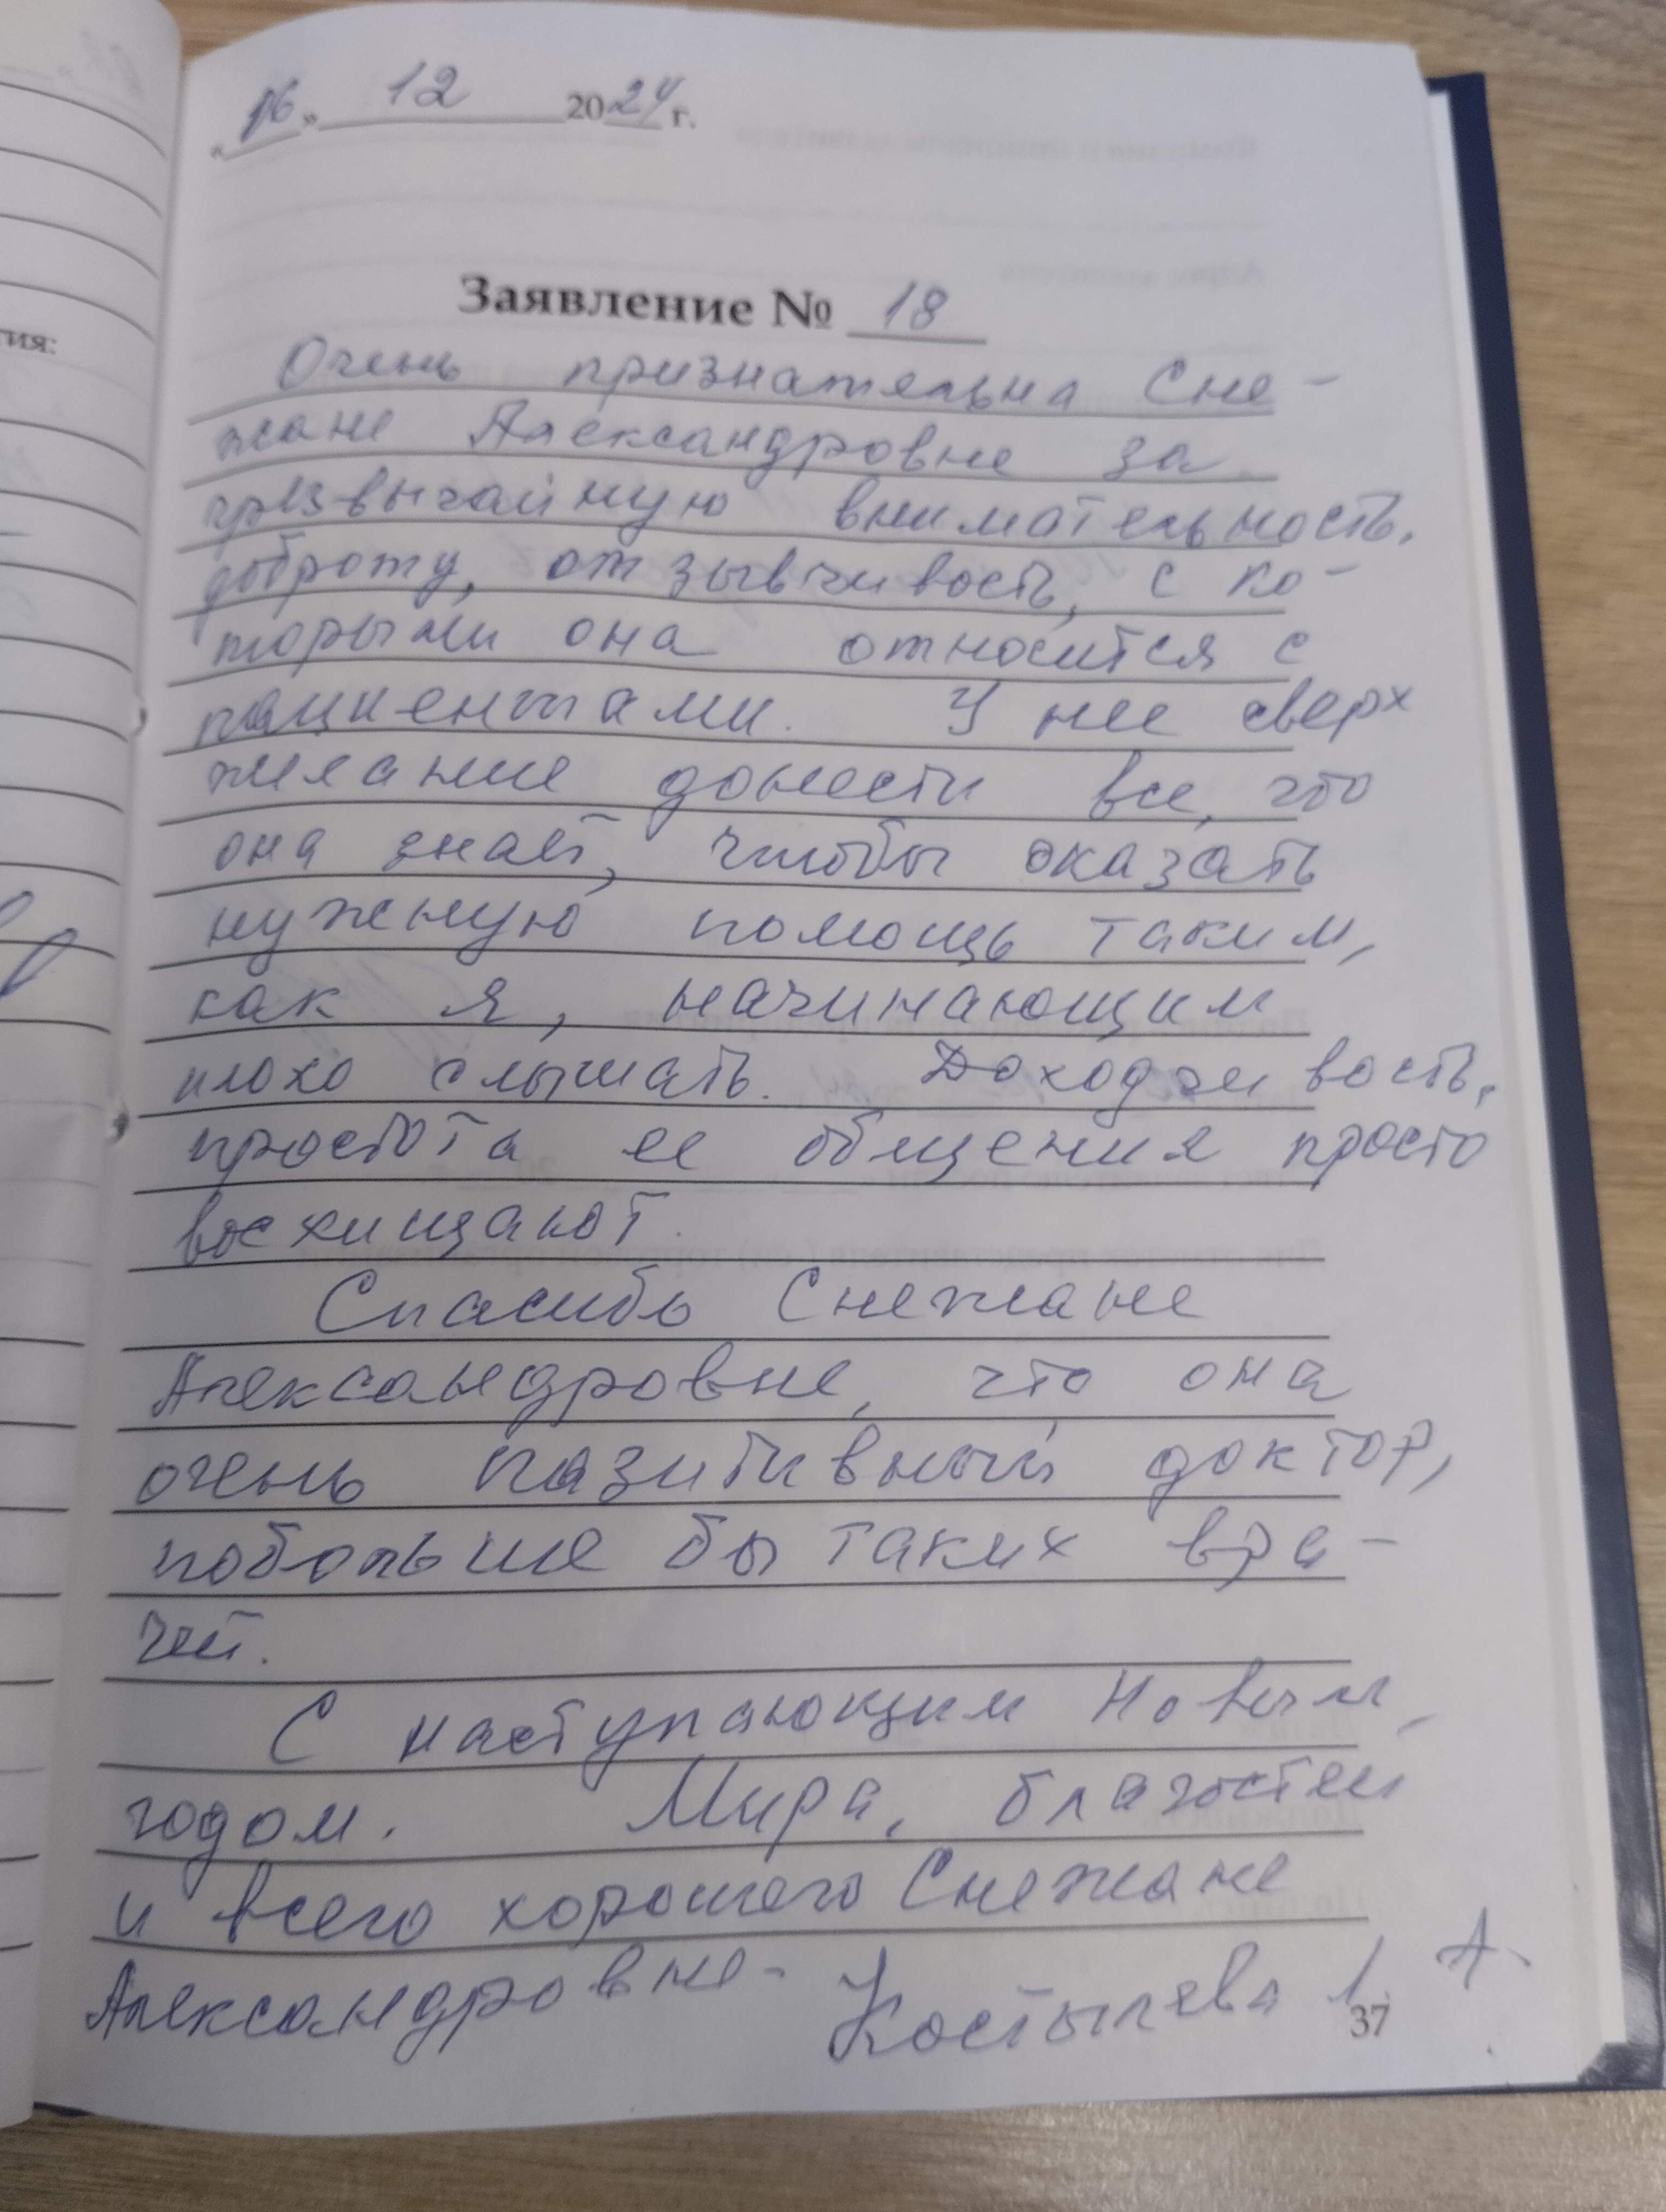 «16» 12 2024 г.
Заявление № 18
Очень признательна Сне-
жане Александровне за
чрезвычайную внимательность,
доброту, отзывчивость, с ко-
торыми она относится с
пациентами. У нее сверх
желание донести все, что
она знает, чтобы оказать
нужную помощь таким,
как я, начинающим
плохо слышать. Доходчивость,
простота ее общения просто
восхищают.
Спасибо Снежане
Александровне, что она
очень позитивный доктор,
побольше бы таких вра-
чей.
С наступающим Новым
годом. Мира, благостей
и всего хорошего Снежане
Александровне- Костылева А.
37
тия: